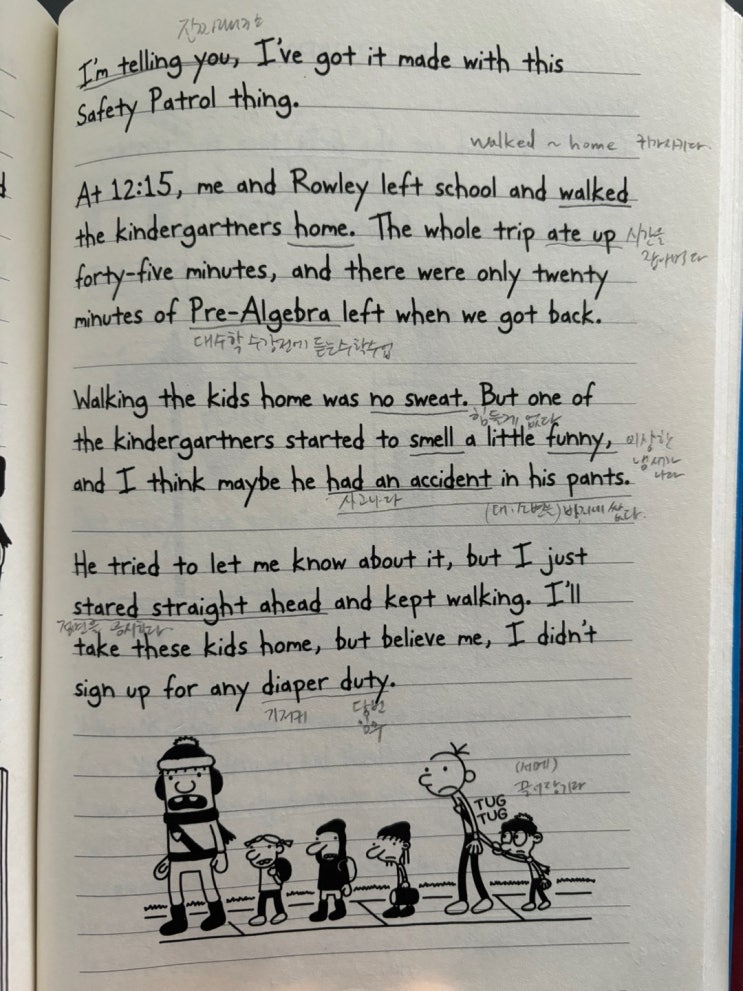 진짜라니까요
I'm telling you, I've got it made with this
Safety Patrol thing.
walked ~ home 귀가시키다.
At 12:15, me and Rowley left school and walked
the kindergartners home. The whole trip ate up 시간을
잡아먹다
forty-five minutes, and there were only twenty
minutes of Pre-Algebra left when we got back.
대수학 수강전에 듣는 수학수업
Walking the kids home was no sweat. But one of
힘들게 없다
the kindergartners started to smell a little funny, 이상한
냄새가
나다
and I think maybe he had an accident in his pants.
사고나다 (대.소변을) 바지에 쌌다.
He tried to let me know about it, but I just
stared straight ahead and kept walking. I'll
정면을 응시하다
take these kids home, but believe me, I didn't
sign up for any diaper duty.
기저귀 당번
임무
(세게)
끌어당기다
TUG
TUG